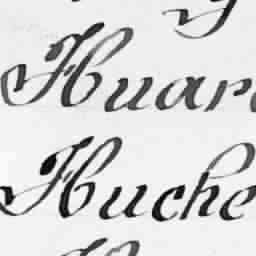 Huar
Huche